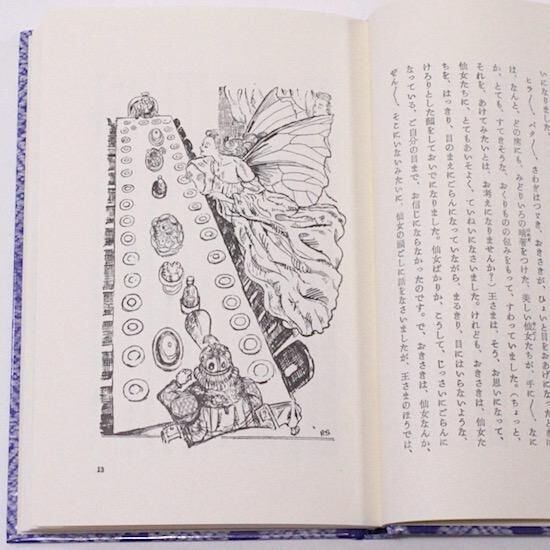 いになりました。
ヒラ〳〵、パタ〳〵、さわぎはつてき、おきさきが、ひょいと目をおあげになったときに
は、なんと、どの席にも、みどりいろの晴着をつけた、美しい仙女たちが、手に〳〵、なに
か、とても、すてきそうな、おくりものの包みをもって、すわっていました。（ちょっと、
それを、あけてみたいとは、お考えになりませんか？）王さまは、そう、お思いになって、
仙女たちに、とてもあいそよく、ていねいになさいました。けれども、おきさきは、仙女た
ちを、はっきり、目のまえにごらんになっていながら、まるきり、目にはいらないような、
けろりとした顔をしておいでになりました。仙女ばかりか、こうして、じっさいにごらんに
なっている、ご自分の目まで、お信じにならなかったのです。で、おきさきは、仙女なんか、
ぜん〳〵、そこにいないみたいに、仙女の頭ごしに話をなさいましたが、王さまのほうでは、
RS
13